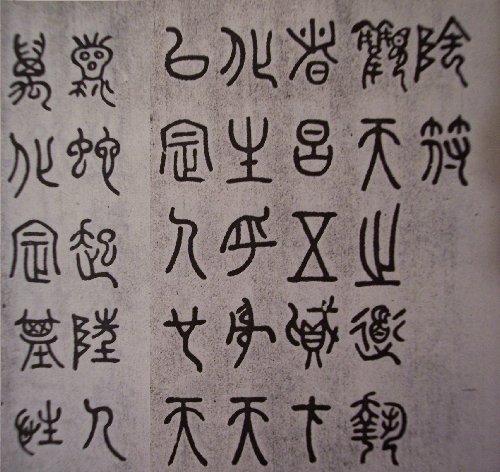 陰符
觀天之道執
者昌五賊在
化生乎身天
以定人也天
蛇起陸人
萬化定基性